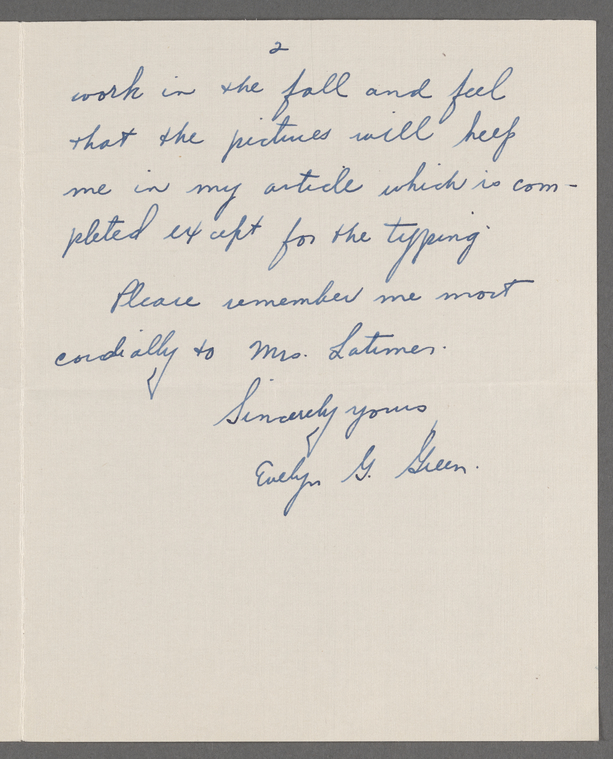 2
work in the fall and feel
that the pictures will help
me in my article which is com-
pleted except for the typing.
Please remember me most
cordially to Mrs. Latimer.
Sincerely yours,
Evelyn G. Green.